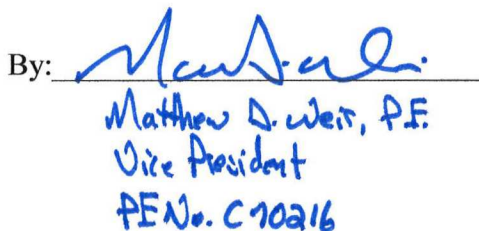 By:
Matthew D. Weir, P.E.
Vice President
PE No. C70216